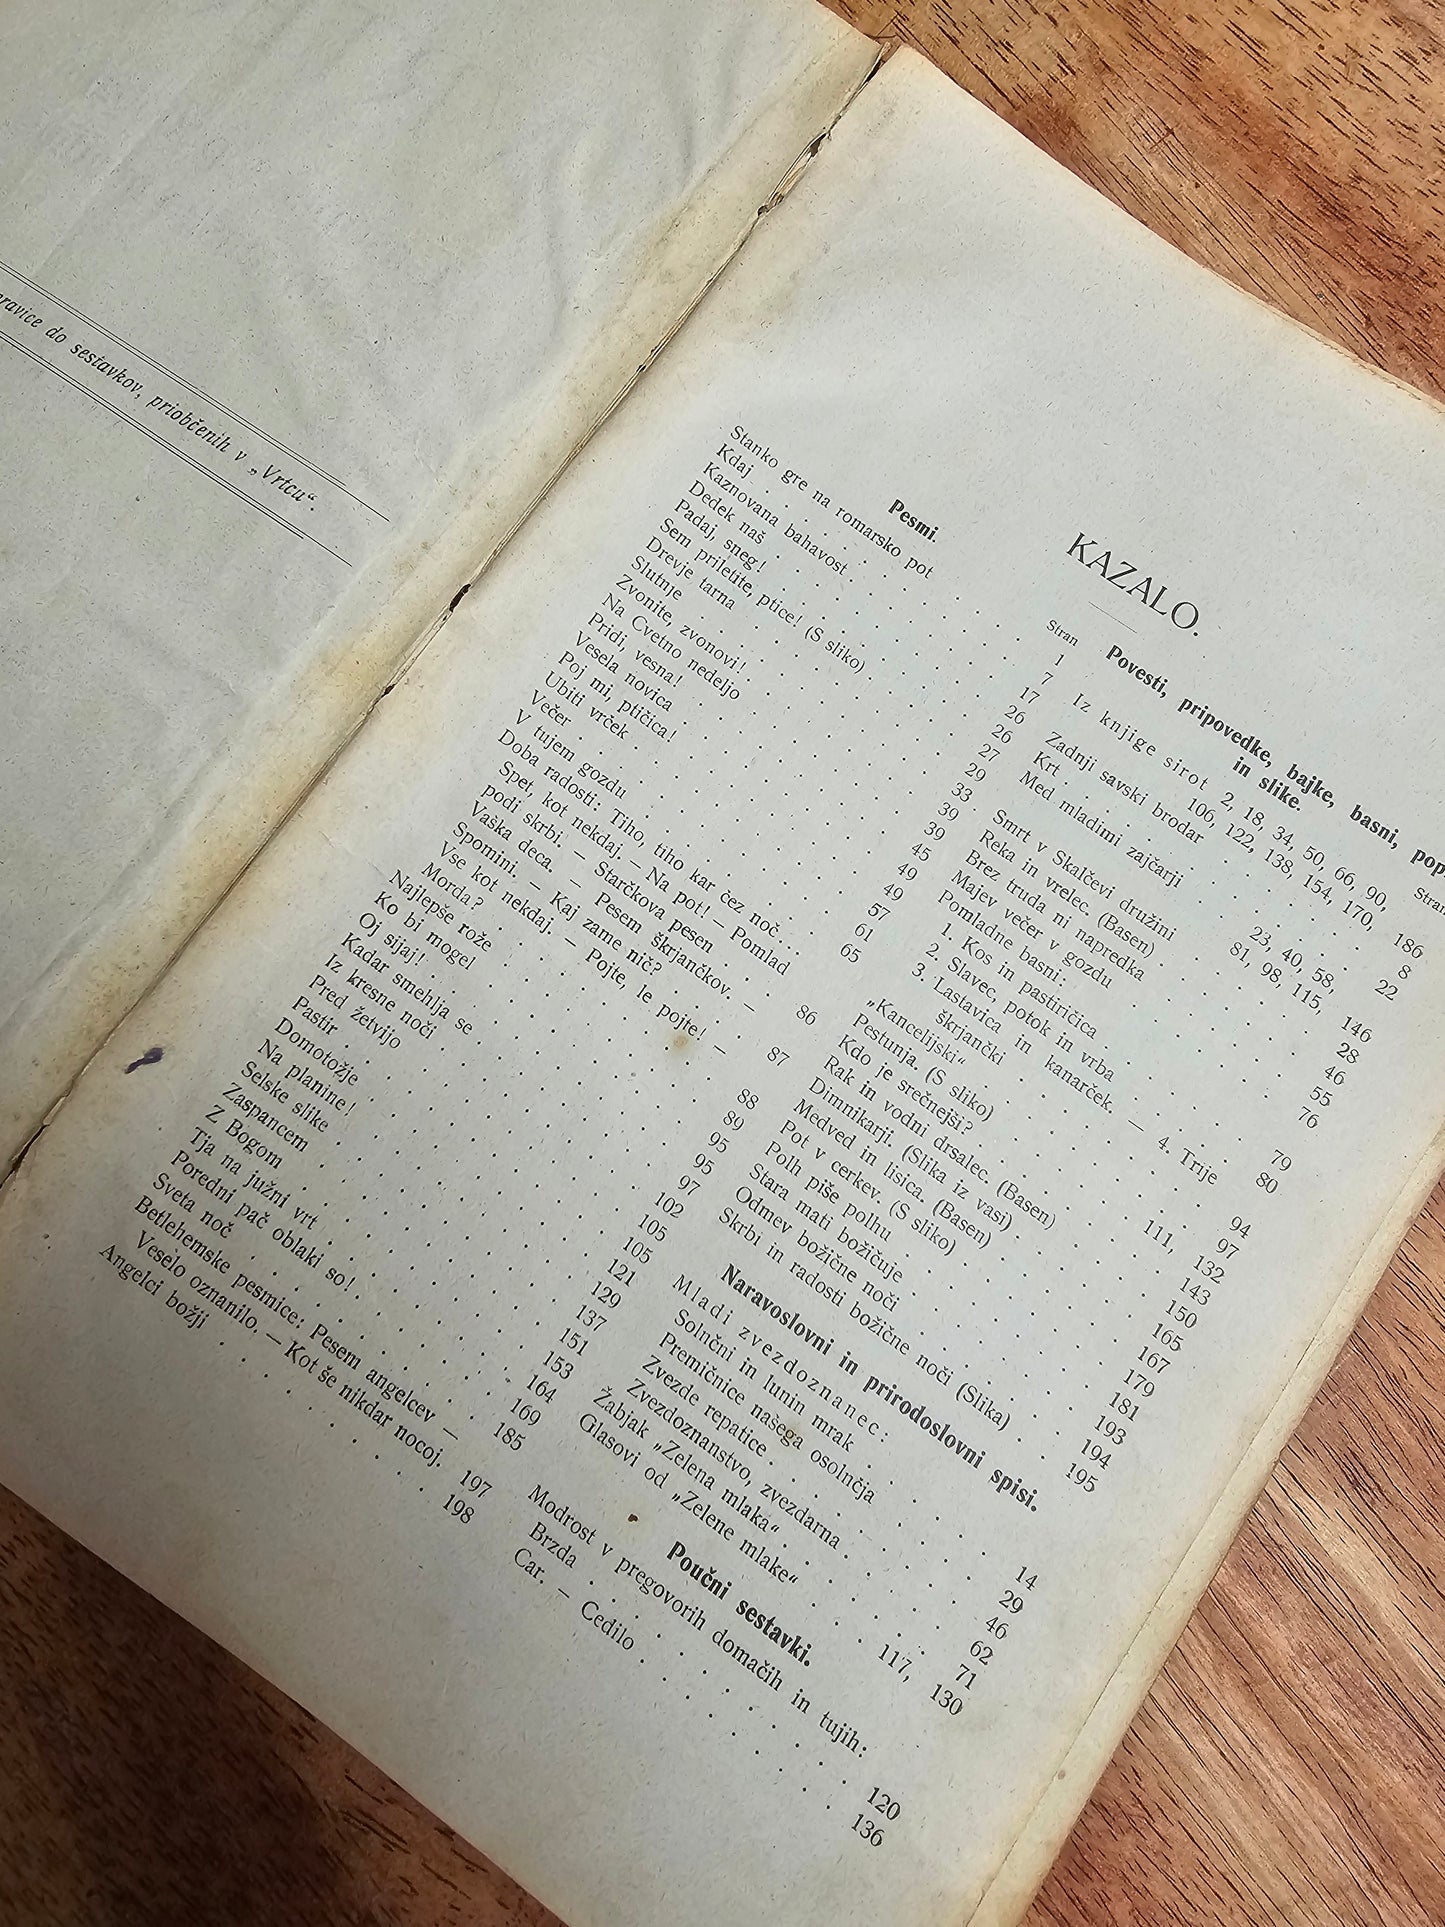 pravice do sestavkov, priobčenih v „Vrtcu“.
KAZALO.
Pesmi.
Stran
Stanko gre na romarsko pot . . . 1
Kdaj . . . 7
Kaznovana bahavost . . . 17
Dedek naš . . . 26
Padaj, sneg! . . . 26
Sem priletite, ptice! (S sliko) . . . 27
Drevje tarna . . . 29
Slutnje . . . 33
Zvonite, zvonovi! . . . 39
Na Cvetno nedeljo . . . 39
Pridi, vesna! . . . 45
Vesela novica . . . 49
Poj mi, ptičica! . . . 49
Ubiti vrček . . . 57
Večer . . . 61
V tujem gozdu . . . 65
Doba radosti: Tiho, tiho kar čez noč...
Spet, kot nekdaj. — Na pot! — Pomlad
podi skrbi. — Starčkova pesen . . . 86
Vaška deca. — Pesem škrjančkov. —
Spomini. — Kaj zame nič? . . . 87
Vse kot nekdaj. — Pojte, le pojte! —
Morda? . . . 88
Najlepše rože . . . 89
Ko bi mogel . . . 95
Oj sijaj! . . . 95
Kadar smehlja se . . . 97
Iz kresne noči . . . 102
Pred žetvijo . . . 105
Pastir . . . 105
Domotožje . . . 121
Na planine! . . . 129
Selske slike . . . 137
Zaspancem . . . 151
Z Bogom . . . 153
Tja na južni vrt . . . 164
Poredni pač oblaki so! . . . 169
Sveta noč . . . 185
Betlehemske pesmice: Pesem angelcev —
Veselo oznanilo. — Kot še nikdar nocoj. 197
Angelci božji . . . 198
Povesti, pripovedke, bajke, basni,
in slike.
Stran
Iz knjige sirot 2, 18, 34, 50, 66, 90,
106, 122, 138, 154, 170, 186
Zadnji savski brodar . . . 8
Krt . . . 22
Med mladimi zajčarji 23, 40, 58,
81, 98, 115, 146
Smrt v Skalčevi družini . . . 28
Reka in vrelec. (Basen) . . . 46
Brez truda ni napredka . . . 55
Majev večer v gozdu . . . 76
Pomladne basni:
1. Kos in pastiričica . . . 79
2. Slavec, potok in vrba . . . 80
3. Lastavica in kanarček. — 4. Trije
škrjančki . . . 94
„Kancelijski“ . . . 97
Pestunja. (S sliko) . . . 111, 132
Kdo je srečnejši? . . . 143
Rak in vodni drsalec. (Basen) . . . 150
Dimnikarji. (Slika iz vasi) . . . 165
Medved in lisica. (Basen) . . . 167
Pot v cerkev. (S sliko) . . . 179
Polh piše polhu . . . 181
Stara mati božičuje . . . 193
Odmev božične noči . . . 194
Skrbi in radosti božične noči (Slika) . . . 195
Naravoslovni in prirodoslovni spisi.
Mladi zvezdoznanec:
Solnčni in lunin mrak . . . 14
Premičnice našega osolnčja . . . 29
Zvezde repatice . . . 46
Zvezdoznanstvo, zvezdarna . . . 62
Žabjak „Zelena mlaka“ . . . 71
Glasovi od „Zelene mlake“ . . . 117, 130
Poučni sestavki.
Modrost v pregovorih domačih in tujih:
Brzda . . . 120
Car. — Cedilo . . . 136